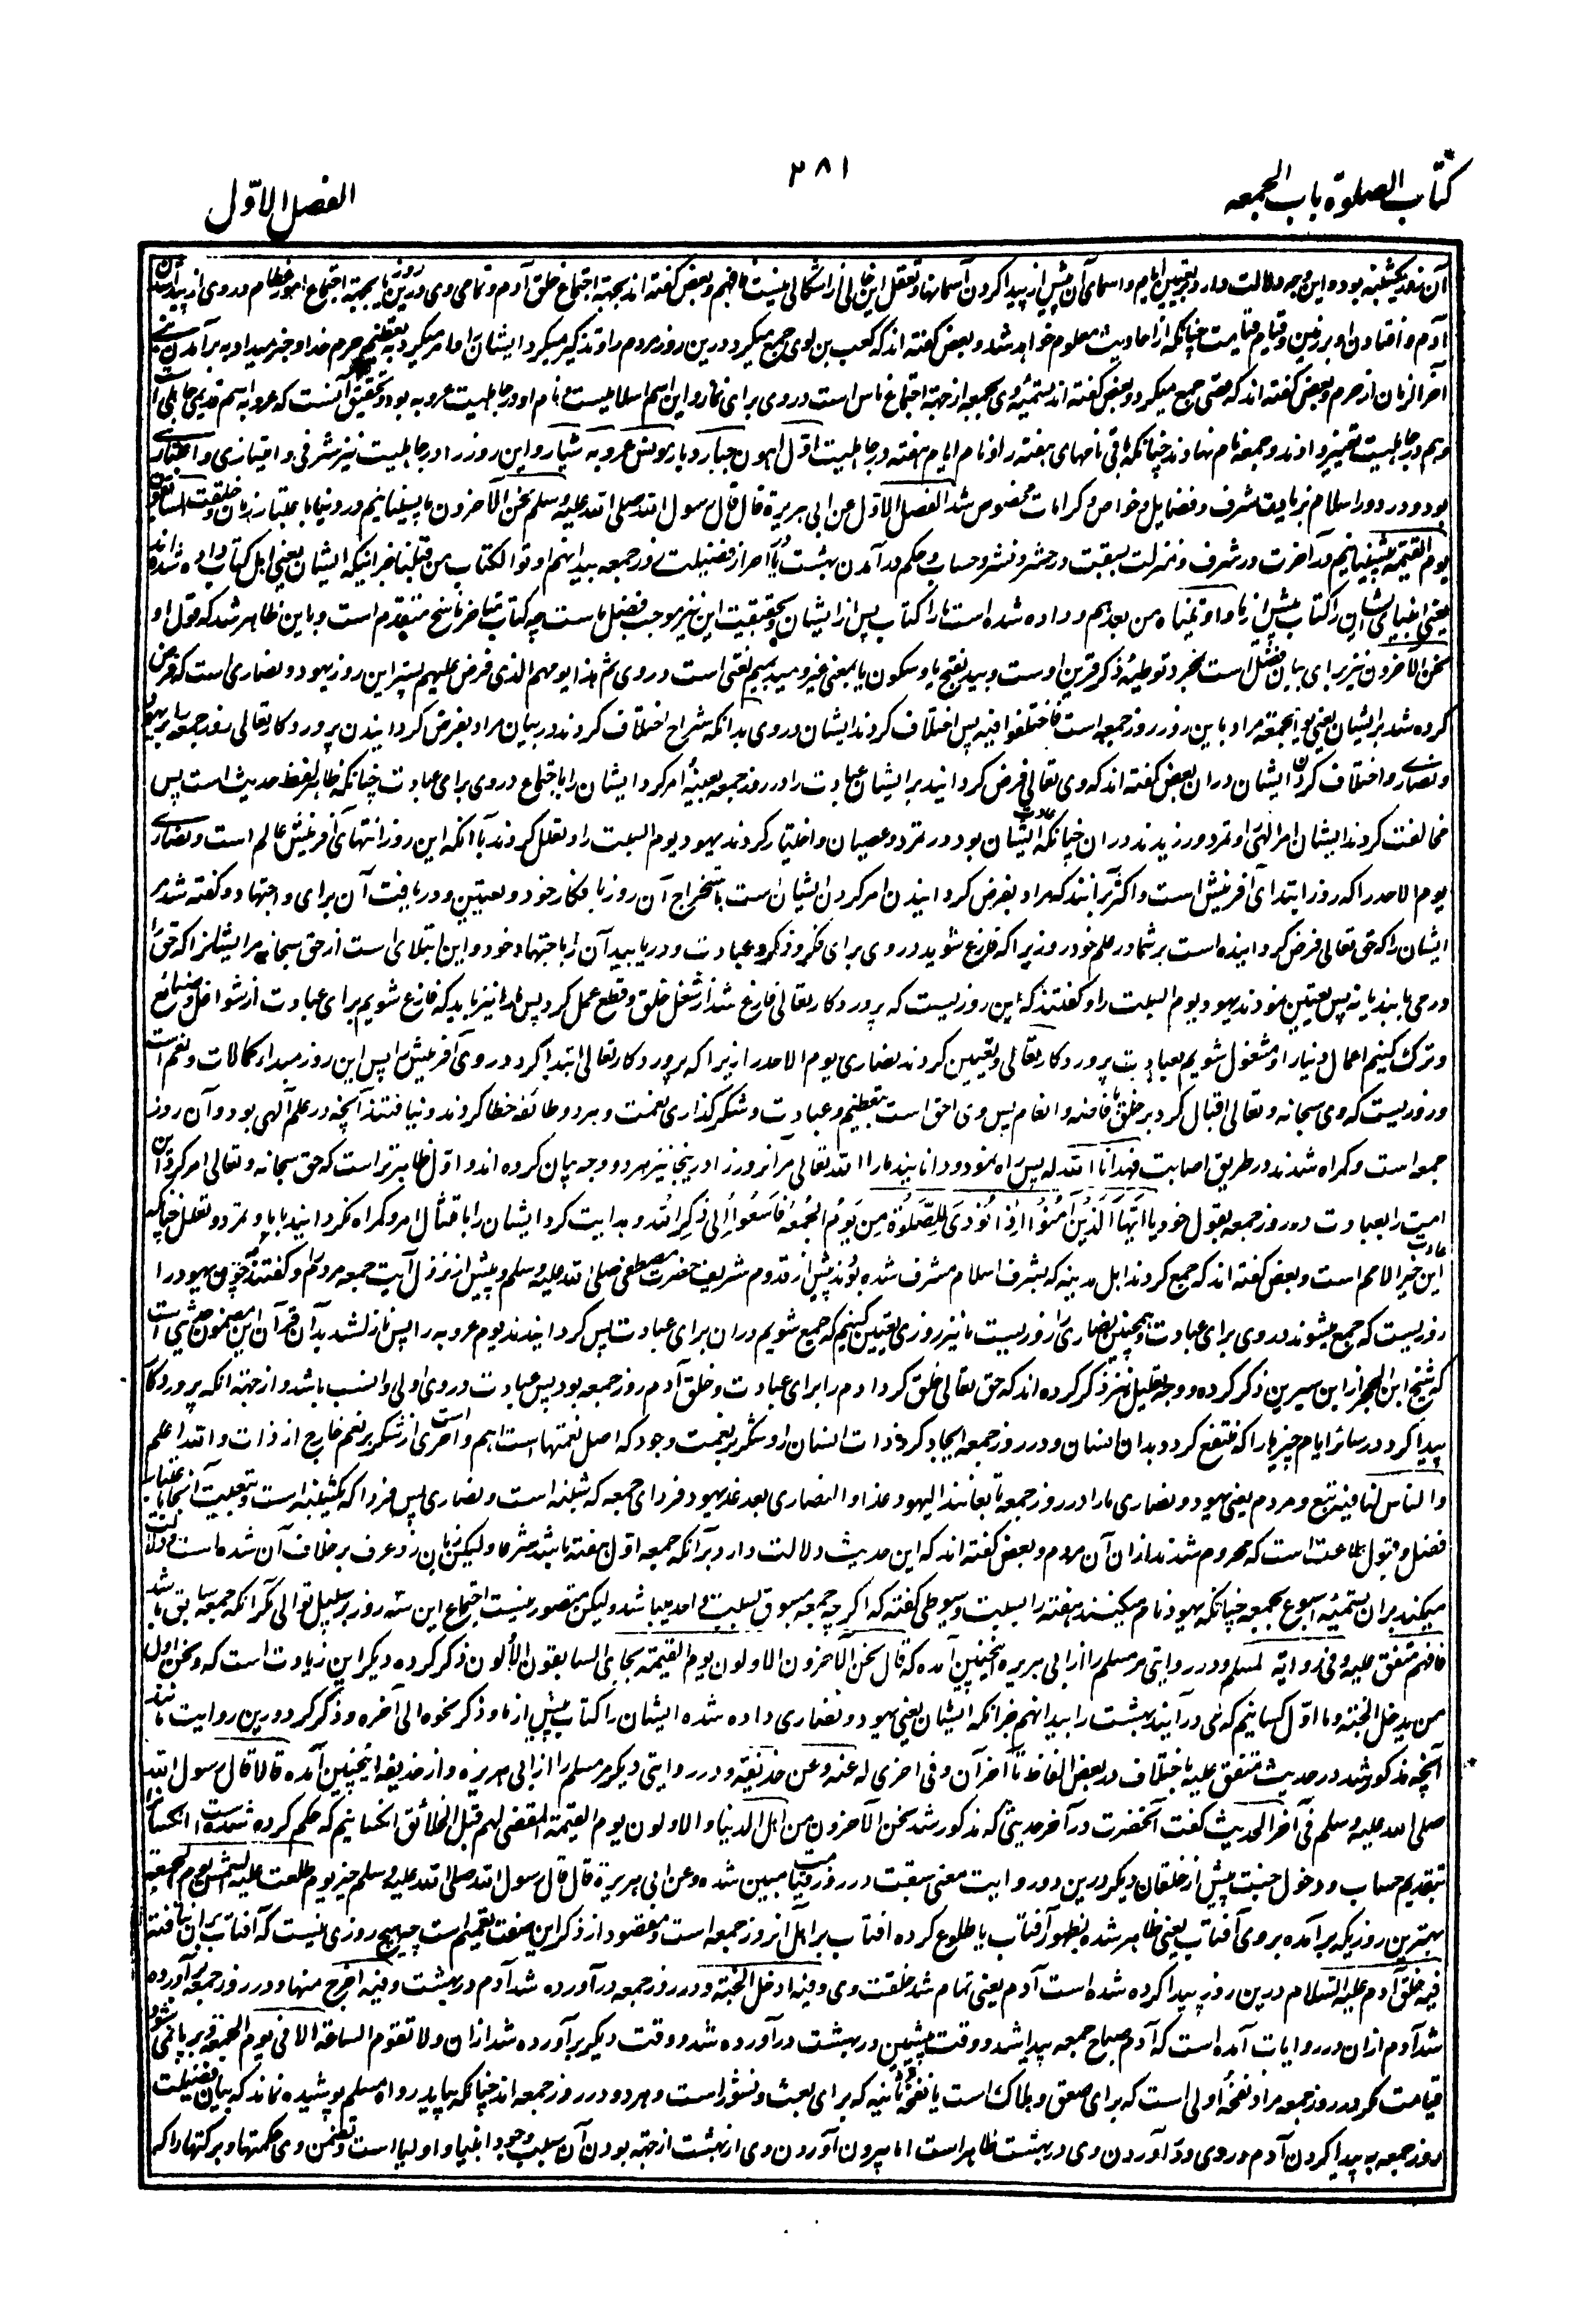 كتاب الصلوة باب الجمعه
۲۸۱
الفصل الاوّل
آن روز یکشنبه بود و این وجه دلالت دارد بر تعیین ایام و اسمای آن پیش از پیدا کردن آسمانها و تعقل این خالی از اشکالی نیست فافهم و بعض گفته اند بجهة اجتماع خلق آدم و تمامی وی درین روز یا بجهة اجتماع امور عظام در وی از پیدا شدن
آدم و افتادن او بر زمین و قیام قیامت چنانکه از احادیث معلوم خواهد شد و بعض گفته اند که کعب بن لوی جمع میکرد درین روز مردم را و تذکیر میکرد ایشان را و امر میکرد بتعظیم حرم خدا و خبر میداد به برآمدن نبی
آخر الزمان از حرم و بعض گفته اند که قصی جمع میکرد و بعض گفته اند تسمیهٔ وی بجمعه از جهة اجتماع ناس است در وی برای نماز و این اسم اسلامیست و نام او در جاهلیت عروبه بود و تحقیق آنست که عروبه اسم قدیمی جاهلی است
و هم در جاهلیت تغییر دادند و جمعه نام نهادند چنانکه باقی نامهای هفته را و نام ایام هفته در جاهلیت اول اهون جبار دبار مونس عروبه شیار و این روز را در جاهلیت نیز شرفی و امتیازی و اعتباری
بود و در دور اسلام بزیادت شرف و فضایل و خواص و کرامات مخصوص شد الفصل الاول عن ابی هریرة قال قال رسول الله صلی الله علیه وسلم نحن الآخرون ما پسینیانیم در دنیا باعتبار زمان و خلقت السابقون
یوم القیمة پیشینیانیم در آخرت در شرف و منزلت بسبقت در حشر و نشر و حساب و حکم و در آمدن بهشت و یا احراز فضیلت روز جمعه بید انهم اوتوا الکتاب من قبلنا جز اینکه ایشان یعنی اهل کتاب داده شده اند
یعنی انبیای ایشان را کتاب پیش از ما و اوتیناه من بعدهم و داده شده است ما را کتاب پس از ایشان و بحقیقت این نیز موجب فضل ماست چه کتاب متاخر ناسخ متقدم است و باین ظاهر شد که قول او
نحن الآخرون نیز برای بیان فضل است نه مجرد توطیهٔ ذکر قرین اوست و بید بفتح با و سکون یا بمعنی غیر و مید بمیم لغتی است در وی ثم هذا یومهم الذی فرض علیهم پستر این روز یهود و نصاری است که فرض
کرده شد بر ایشان یعنی یوم الجمعة مراد باین روز روز جمعه است فاختلفوا فیه پس اختلاف کردند ایشان در وی بدانکه شراح اختلاف کردند در بیان مراد بفرض گردانیدن پروردگار تعالی روز جمعه را بر یهود
و نصاری و اختلاف کردن ایشان دران بعض گفته اند که وی تعالی فرض گردانید بر ایشان عبادت را در روز جمعه بعینهٔ و امر کرد ایشان را باجتماع در وی برای عبادت چنانکه ظاهر لفظ حدیث است پس
مخالفت کردند ایشان امر الهی را و تمرد ورزیدند دران چنانکه عادت ایشان بود در تمرد و عصیان و اختیار کردند یهود یوم السبت را و تعلل کردند باآنکه این روز انتهای آفرینش عالم است و نصاری
یوم الاحد را که روز ابتدای آفرینش است و اکثر برانند که مراد بفرض گردانیدن امر کردن ایشان است باستخراج آن روز بافکار خود و تعیین و دریافت آن برای و اجتهاد و گفته شد مر
ایشان را که حق تعالی فرض گردانیده است بر شما در علم خود روزیرا که فارغ شوید در وی برای فکر و ذکر و عبادت و دریابید آن را باجتهاد خود و این ابتلای است از حق سبحانه مر ایشانرا که حق را
درمی یابند یا نه پس تعیین نمودند یهود یوم السبت را و گفتند که این روزیست که پروردگار تعالی فارغ شد از شغل خلق و قطع عمل کرد پس ما را نیز باید که فارغ شویم برای عبادت از شواغل و صنائع
و ترک کنیم اعمال دنیا را و مشغول شویم بعبادت پروردگار تعالی و تعیین کردند نصاری یوم الاحد را زیرا که پروردگار تعالی ابتدا کرد در وی آفرینش را پس این روز مبداء کمالات و نعم است
و روزیست که وی سبحانه و تعالی اقبال کرد بر خلق بافاضه و انعام پس وی احق است بتعظیم و عبادت و شکر گذاری نعمت و هر دو طائفه خطا کردند و نیافتند آنچه در علم الهی بود و آن روز
جمعه است و گمراه شدند در طریق اصابت فهدانا الله له پس راه نمود و دانانید ما را الله تعالی مر آنروز را درینجا نیز هر دو وجه بیان کرده اند و اول ظاهرتر است که حق سبحانه و تعالی امر کرد این
امت را بعبادت در روز جمعه بقول خود یا ایها الذین آمنوا اذا نودی للصلوة من یوم الجمعة فاسعوا الی ذکر الله و هدایت کرد ایشان را بامتثال امر و گمراه نکردانید بابا و تمرد و تعلل چنانکه عادت
این خیر الامم است و بعض گفته اند که جمع کردند اهل مدینه که بشرف اسلام مشرف شده بودند پیش از قدوم شریف حضرت مصطفی صلی الله علیه وسلم و پیش از نزول آیت جمعه مردم را و گفتند چون یهود را
روزیست که جمع میشوند در وی برای عبادت و همچنین نصاری را روزیست ما نیز روزی تعیین کنیم که جمع شویم دران برای عبادت پس گردانیدند یوم عروبه را پس نازل شد بدان قرآن این مضمون حدیثی است
که شیخ ابن الحجر از ابن سیرین ذکر کرده و وجه تعلیل نیز ذکر کرده اند که حق تعالی خلق کرد آدم را برای عبادت و خلق آدم روز جمعه بود پس عبادت در وی اولی و انسب باشد و از جهة آنکه پروردگار
پیدا کرد در سائر ایام چیزها را که منتفع گردد بدان انسان و در روز جمعه ایجاد کرد ذات انسان را و شکر بر نعمت وجود که اصل نعمتها است اهم و احری است از شکر بر نعم خارج از ذات و الله اعلم
والناس لنا فیه تبع و مردم یعنی یهود و نصاری ما را در روز جمعه تابعانند الیهود غدا و النصاری بعد غد یهود فردای جمعه که شنبه است و نصاری پس فردا که یکشنبه است و تبعیت اینجا باعتبار
فضل و قبول طاعت است که محروم شدند ازان آن مردم و بعض گفته اند که این حدیث دلالت دارد بر آنکه جمعه اول هفته باشد شرعا و لیکن بر زبان و عرف بر خلاف آن شده است و دلالت
میکند بران تسمیهٔ اسبوع بجمعه چنانکه یهود نام میکنند هفته را بسبت و سیوطی گفته که اگر چه جمعه مسبوق بسبت و احد میباشد و لیکن متصور نیست اجتماع این سه روز بر سبیل توالی مگر آنکه جمعه سابق باشد
فافهم متفق علیه و فی روایة لمسلم و در روایتی مر مسلم را از ابی هریره اینچنین آمده که قال نحن الآخرون الاولون یوم القیمة بجای السابقون الاولون ذکر کرده دیگر این زیادت است که و نحن اول
من یدخل الجنة و ما اول کسانیم که می در آیند بهشت را بید انهم جز آنکه ایشان یعنی یهود و نصاری داده شده ایشان را کتاب پیش از ما و ذکر نحوه الی آخره و ذکر کرد درین روایت مانند
آنچه مذکور شد در حدیث متفق علیه باختلاف در بعض الفاظ تا آخر آن و فی اخری له عنه و عن حذیفة و در روایتی دیگر مر مسلم را از ابی هریره و از حذیفه اینچنین آمده قالا قال رسول الله
صلی الله علیه وسلم فی آخر الحدیث گفت آنحضرت در آخر حدیثی که مذکور شد نحن الآخرون من اهل الدنیا و الاولون یوم القیمة المقضی لهم قبل الخلائق آنکسانیم که حکم کرده شده است آنکسانرا
بتقدیم حساب و دخول جنت پیش از خلقان دیگر درین دو روایت معنی سبقت در روز قیامت مبین شده و عن ابی هریرة قال قال رسول الله صلی الله علیه وسلم خیر یوم طلعت علیه الشمس یوم الجمعة
بهترین روزیکه برآمده بر وی آفتاب یعنی ظاهر شده بظهور آفتاب یا طلوع کرده افتاب بر اهل آنروز جمعه است و مقصود از ذکر این صفت تعمیم است چه هیچ روزی نیست که آفتاب بران نتافته
فیه خلق آدم علیه السلام درین روز پیدا کرده شده است آدم یعنی تمام شد خلقت وی و فیه ادخل الجنة و در روز جمعه درآورده شد آدم در بهشت و فیه اخرج منها و در روز جمعه برآورده
شد آدم ازان در روایات آمده است که آدم صباح جمعه پیدا شد و وقت پیشین در بهشت درآورده شد و وقت دیگر برآورده شد ازان و لا تقوم الساعة الا فی یوم الجمعة و برپا نمی شود
قیامت مگر در روز جمعه مراد نفخهٔ اولی است که برای صعق و هلاک است یا نفخهٔ ثانیه که برای بعث و نشور است و هر دو در روز جمعه اند چنانکه بیاید رواه مسلم پوشیده نماند که بیان فضیلت
روز جمعه به پیدا کردن آدم در وی و درآوردن وی در بهشت ظاهر است اما بیرون آوردن وی از بهشت از جهة بودن آن سبب وجود انبیا و اولیا است و تضمن وی حکمتها و برکتها را که